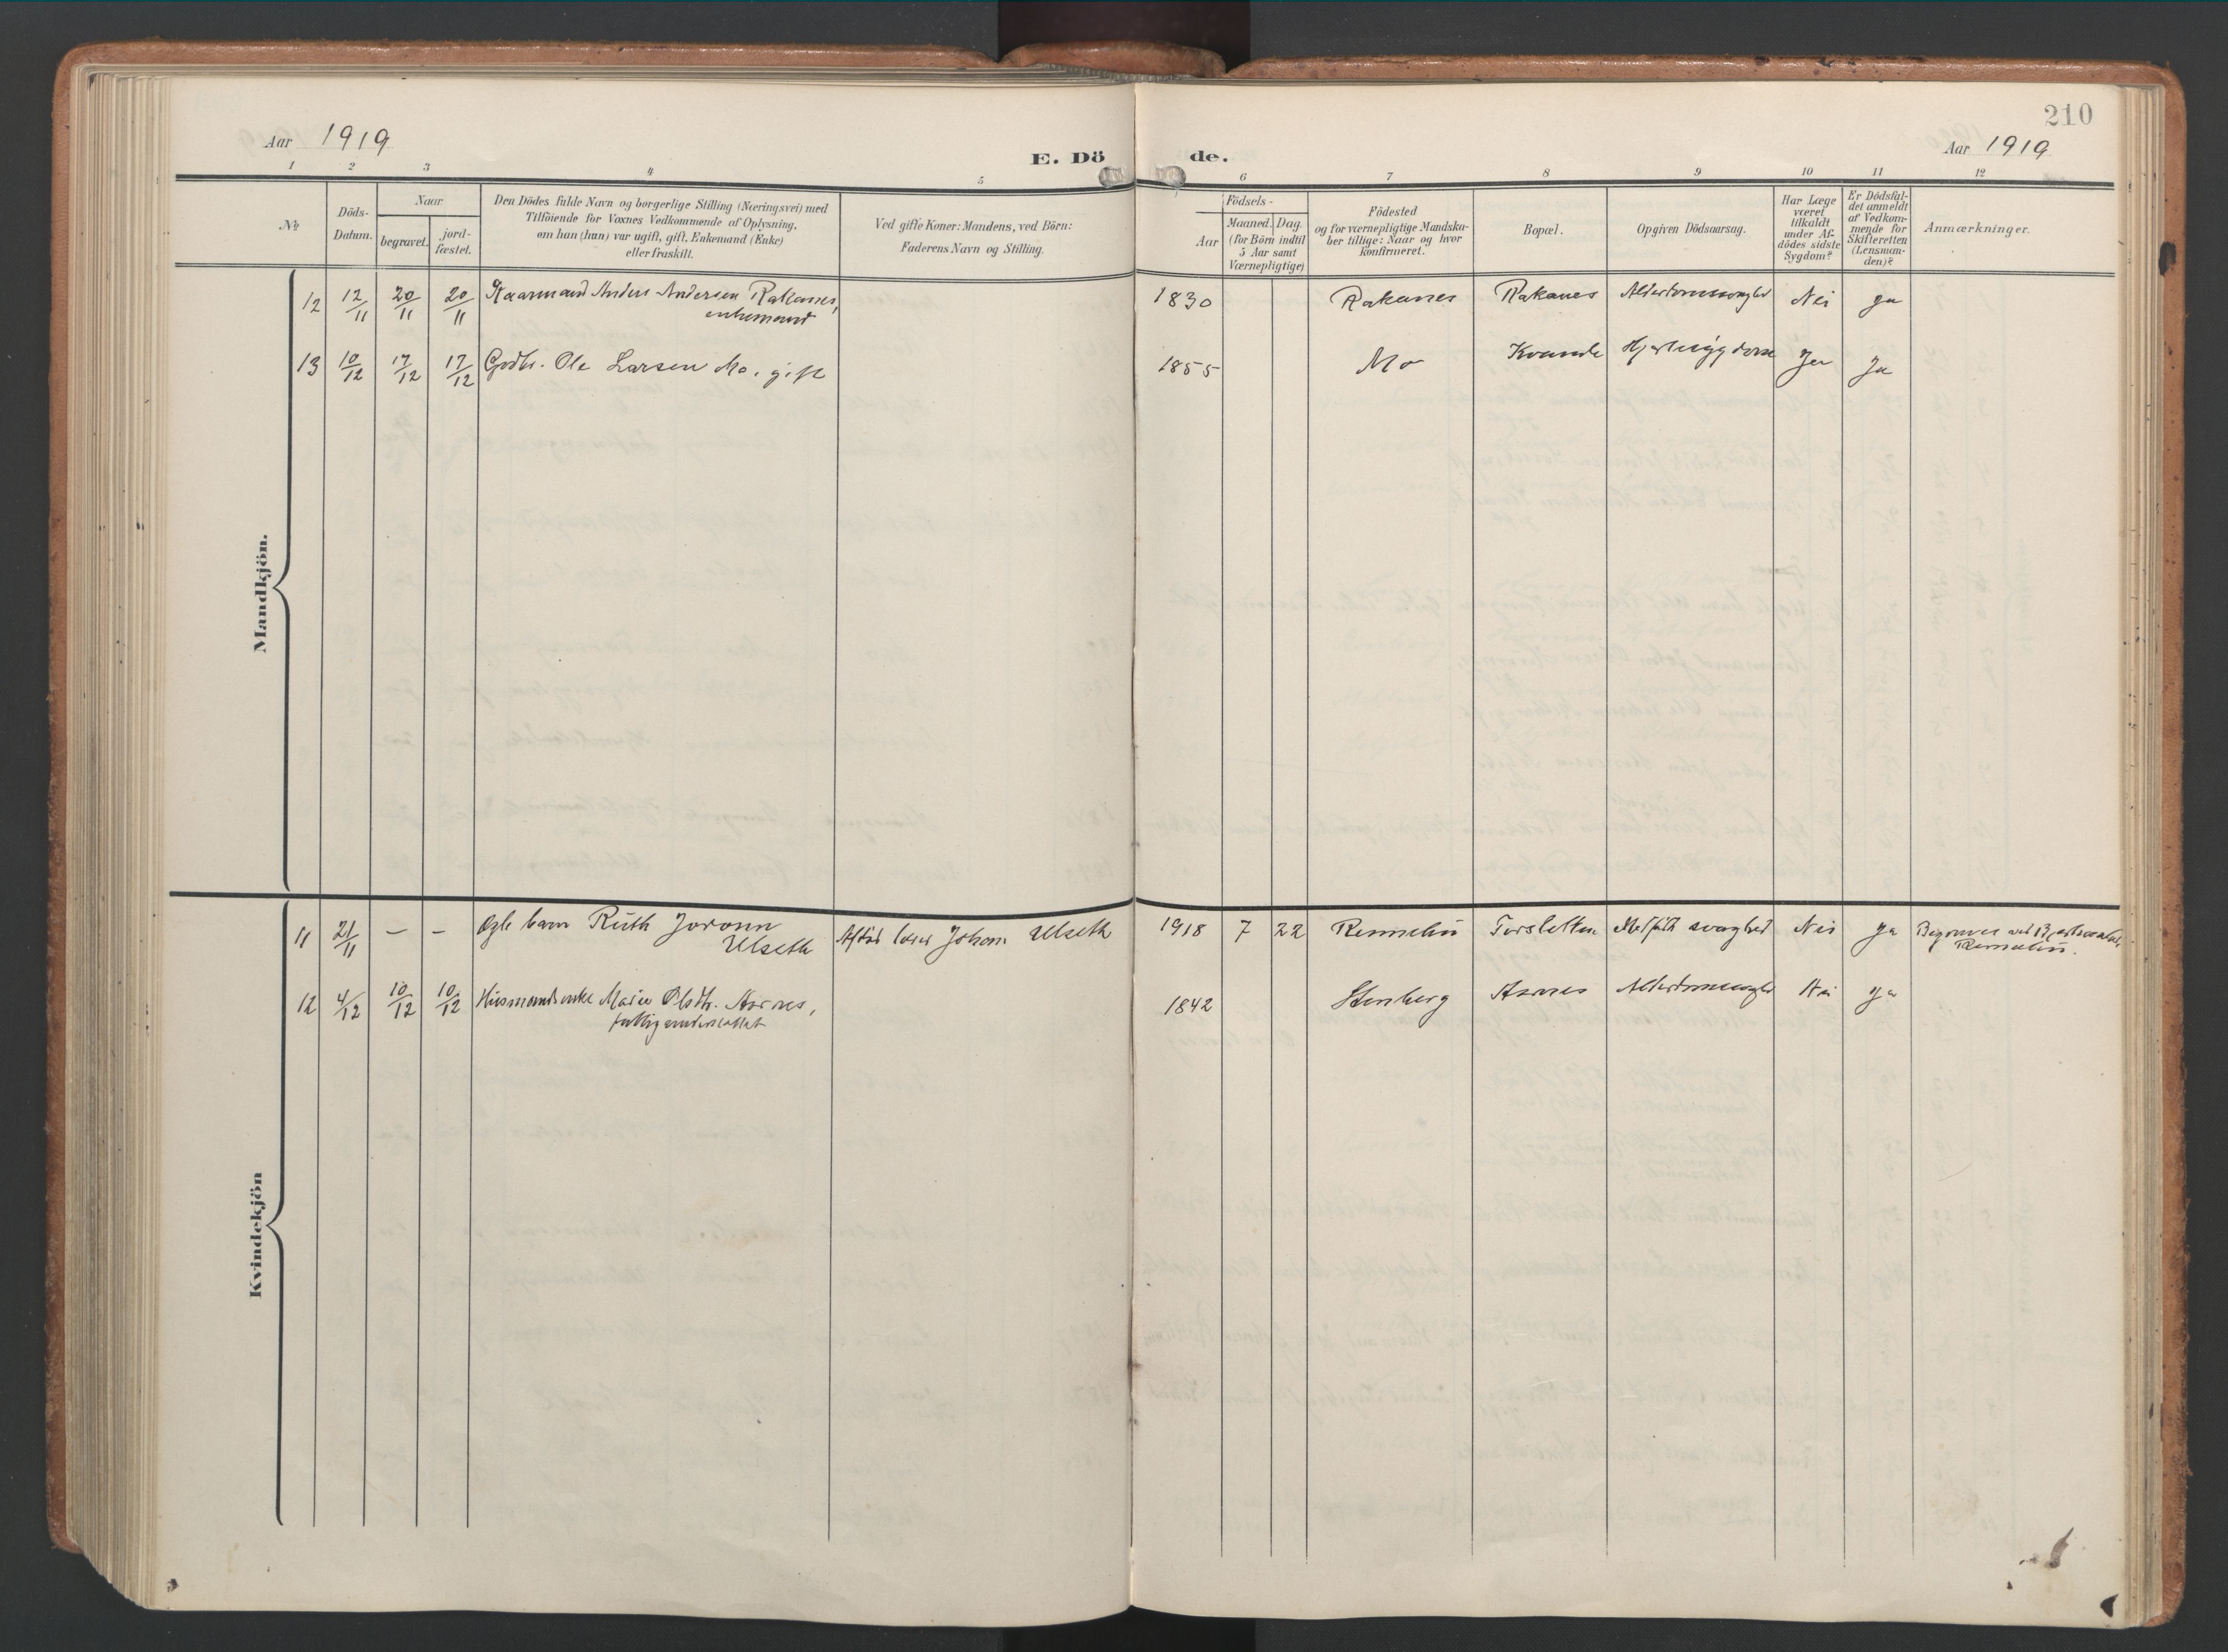 210
Aar 1919
E. Döde.
Aar 1919
1 2 3 4 5 6 7 8 9 10 11 12
No
Döds-Datum.
Naar
begravet.
jord-fæstet.
Den Dödes fulde Navn og borgerlige Stilling (Næringsvei) med
Tilföiende for Voxnes Vedkommende af Oplysning,
om han (hun) var ugift, gift, Enkemand (Enke)
eller fraskilt.
Ved gifte Koner: Mandens, ved Börn:
Faderens Navn og Stilling.
Födsels-
Aar
Maaned. Dag.
(for Börn indtil
5 Aar samt
Værnepligtige)
Födested
og for værnepligtige Mandska-
ber tillige: Naar og hvor
konfirmeret.
Bopæl.
Opgiven Dödsaarsag.
Har Læge
været
tilkaldt
under Af-
dödes sidste
Sygdom?
Er Dödsfal-
det anmeldt
af Vedkom-
mende for
Skifteretten
(Lensman-
den)?
Anmærkninger.
Mandkjön.
12 12/11 20/11 20/11 Kaarmand Anders Andersen Rakanes, 1830 Rakanes Rakanes Alderdomssvaghed Nei Ja
enkemand
13 10/12 17/12 17/12 Gndbr. Ole Larsen Mo, gift 1855 Mo Kvande Hjertesygdom Ja Ja
Kvindekjön
11 21/11 – – Ugte barn Ruth Jorann Johan Ulseth 1918 7 22 Torsletten Medfødt svaghed Nei Ja
Ulseth
12 4/12 10/12 10/12 Husmandsenke Marie Olsdtr. Aarnes, 1842 Stenberg Aarnes Alderdomssvaghed Nei Ja
fattigunderstøttet